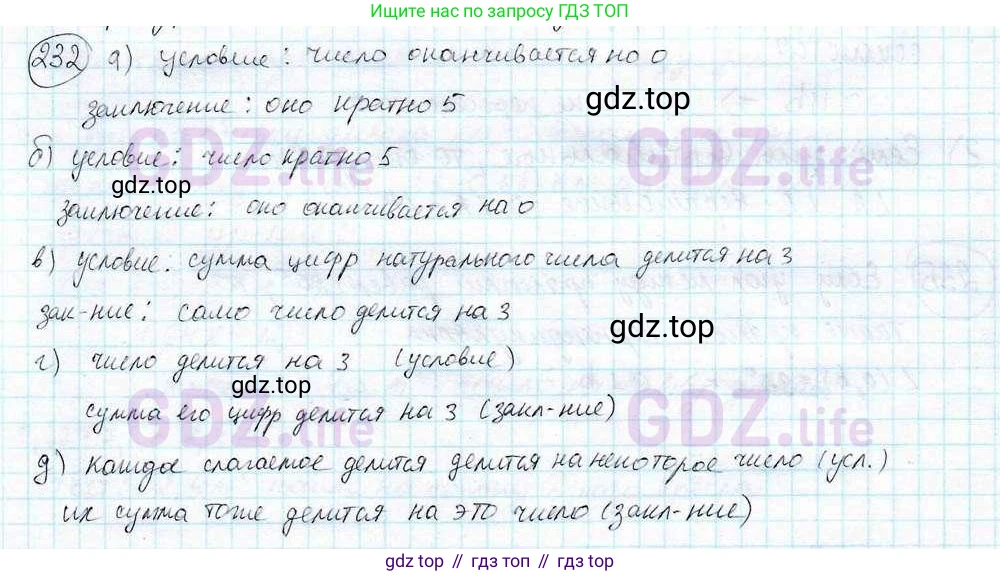 Ищите нас по запросу ГДЗ ТОП
232 а) условие: число оканчивается на 0
заключение: оно кратно 5
gdz.top
GDZ.life GDZ.life
б) условие: число кратно 5
gdz.top
заключение: оно оканчивается на 0
в) условие: сумма цифр натурального числа делится на 3
зак-ние: само число делится на 3
gdz.top
г) число делится на 3 (условие)
gdz.top
сумма его цифр делится на 3 (закл-ние)
GDZ.life GDZ.life
д) каждое слагаемое делится делится на некоторое число (усл.)
их сумма тоже делится на это число (закл-ние)
gdz top // гдз топ // gdz.top // гдз.топ